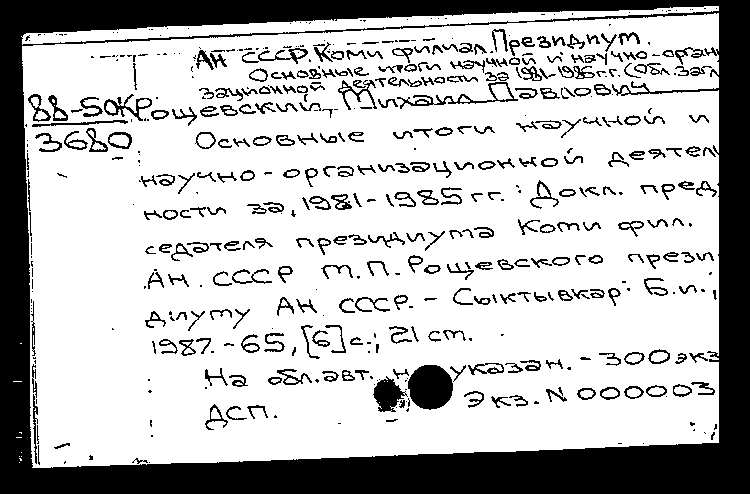 АН СССР. Коми филиал. Президиум.
Основные итоги научной и научно-органи
зационной деятельности за 1981-1985 гг. (Обл. загл
88-5ОКР
3680
Рощевский, Михаил Павлович
Основные итоги научной и
научно-организационной деятель
ности за 1981-1985 гг.: Докл. пред
седателя президиума Коми фил.
АН СССР М.П. Рощевского прези
диуму АН СССР. - Сыктывкар: Б.и.,
1987. - 65, [6] с.; 21 см.
На обл. авт. указан. - 300 экз
ДСП. Экз. N 000003